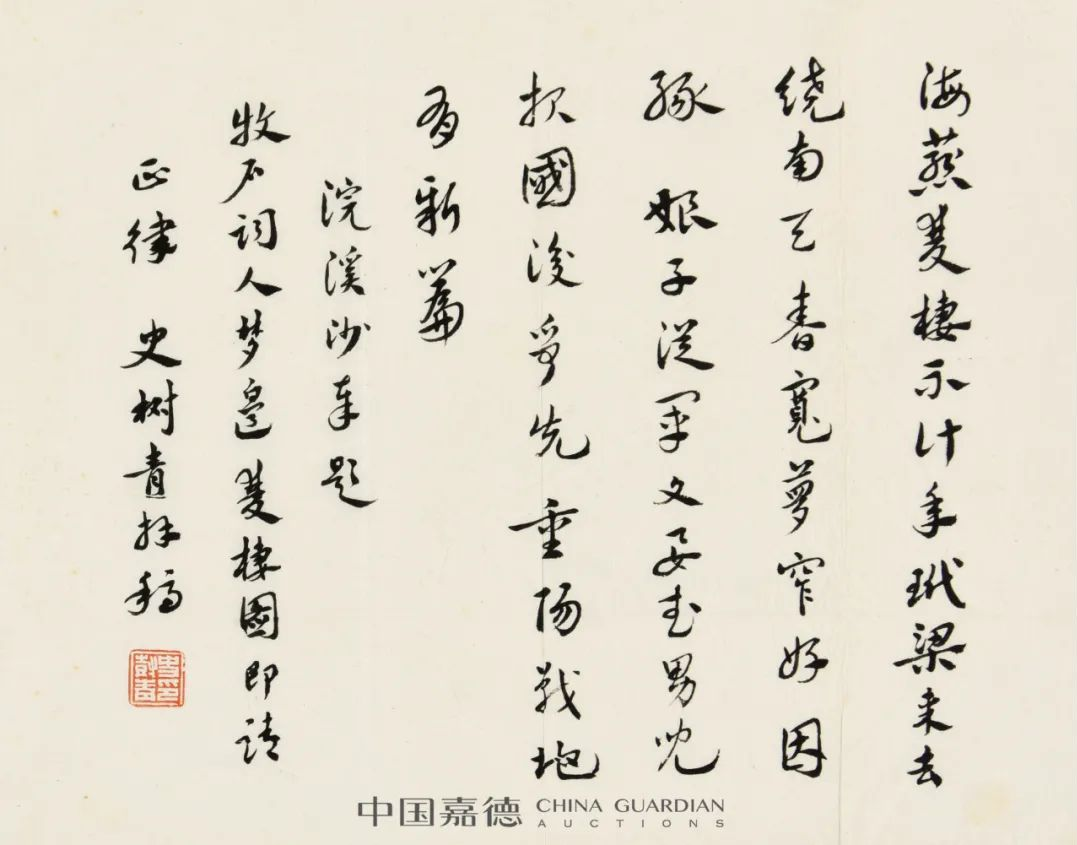 海燕雙棲不计年玳梁来去
绕南天春寬夢窄好因
缘 娘子從军文武男兒
报國後争先重阳戰地
有新篇
浣溪沙奉题
牧石词人梦邊雙棲圖即請
正律 史树青拜稿
中国嘉德 CHINA GUARDIAN
AUCTIONS